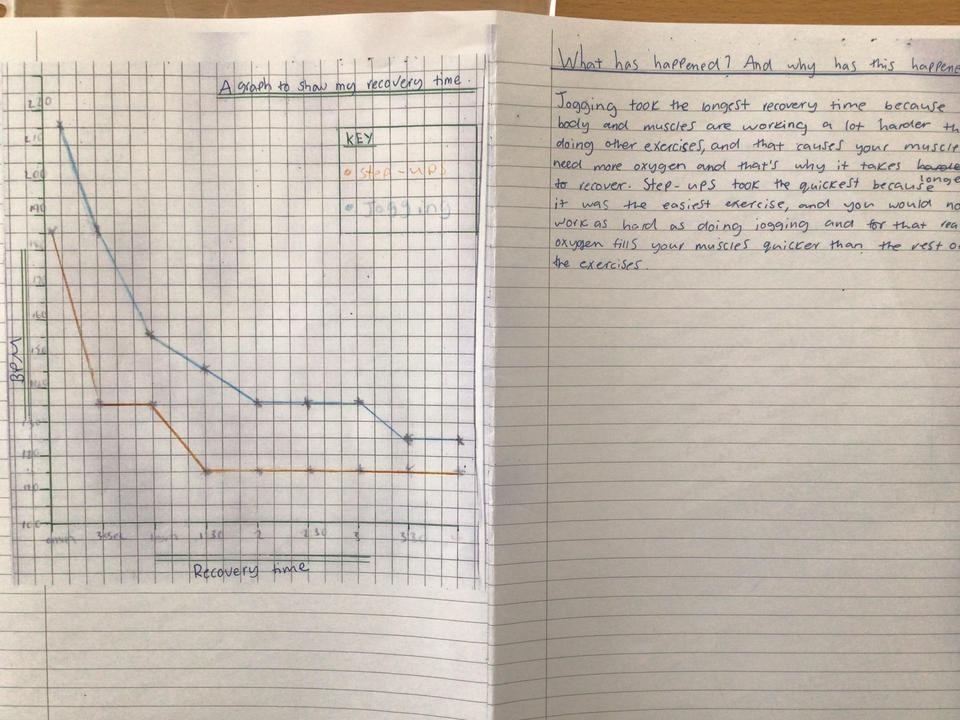 A graph to show my recovery time.
KEY
Step-ups
Jogging
220
210
200
190
160
150
130
120
100
BPM
1 30
2
2 30
3
3 30
Recovery time
What has happened? And why has this happene
Jogging took the longest recovery time because
body and muscles are working a lot harder th
doing other exercises, and that causes your muscle
need more oxygen and that's why it takes
longe
to recover. Step-ups took the quickest because
it was the easiest exercise, and you would no
work as hard as doing jogging and for that rea
oxygen fills your muscles quicker than the rest o
the exercises.